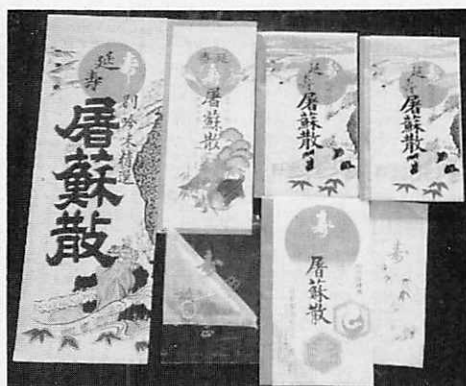 寿
延寿
別吟味精選
屠蘇散
延寿
寿
屠蘇散
延寿
屠蘇散
延寿
屠蘇散
寿
寿
屠蘇散
寿